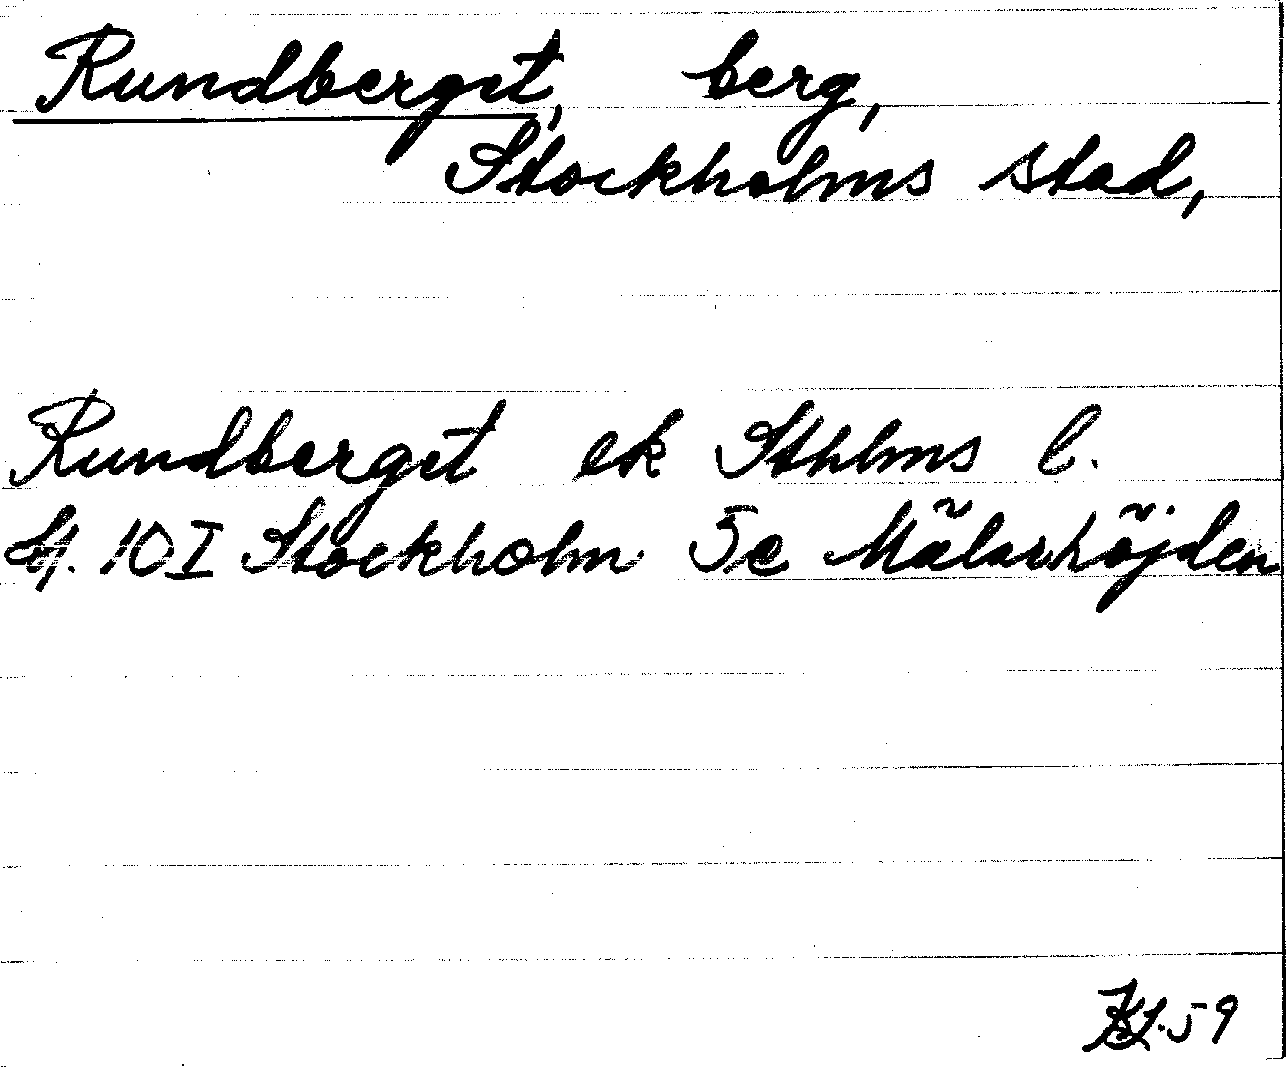 Rundberget, berg,
Stockholms stad,
Rundberget ek Sthlms l.
10 I Stockholm 5e Mälarhöjden
59